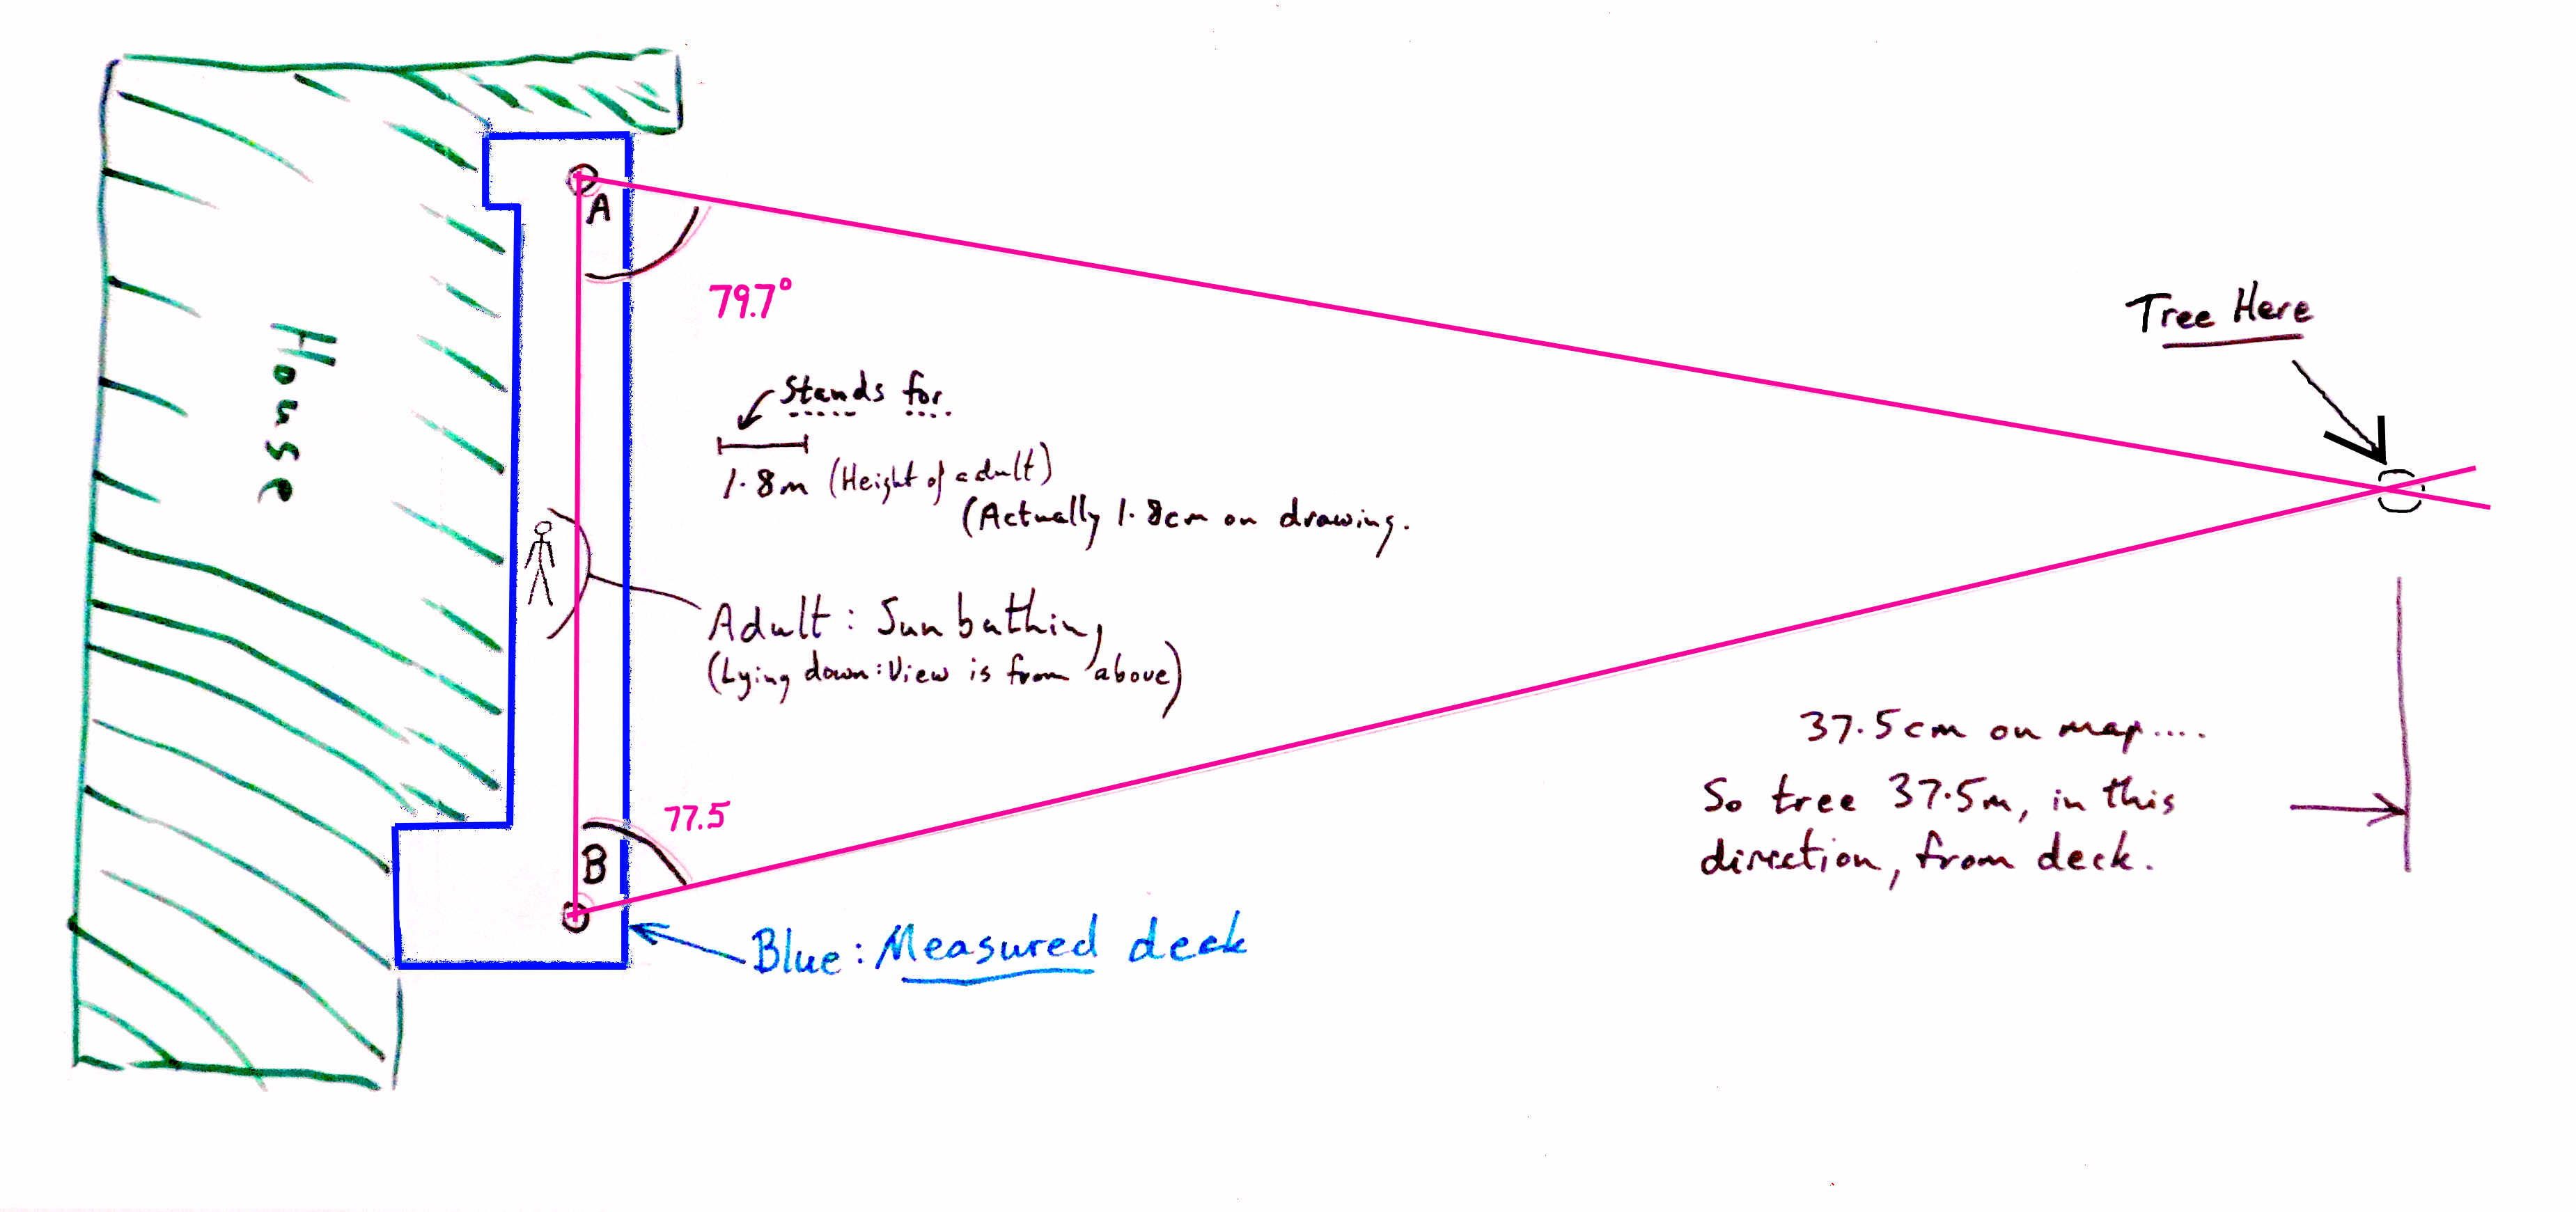 A
79.7°
House
Tree Here
Stands for
1.8m (Height of adult)
(Actually 1.8cm on drawing.
Adult: Sunbathing
(Lying down: View is from above)
37.5cm on map....
So tree 37.5m, in this
direction, from deck.
77.5
B
Blue: Measured deck